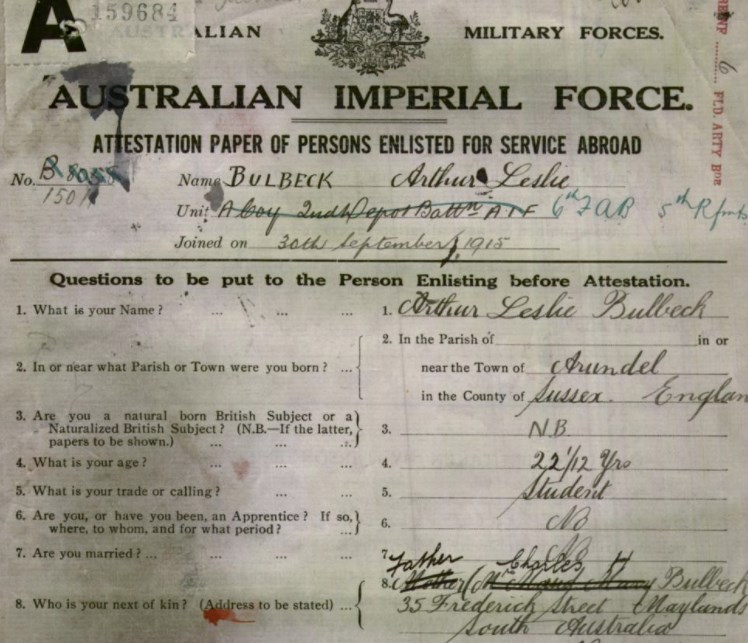 A 159684
AUSTRALIAN MILITARY FORCES.
AUSTRALIAN IMPERIAL FORCE.
ATTESTATION PAPER OF PERSONS ENLISTED FOR SERVICE ABROAD
No. B 8055 Name BULBECK Arthur Leslie
1501
Unit A Coy 2nd Depot Battn AIF 6th FAB 5th Rfmts
Joined on 30th September, 1915
FLD. ARTY BDE
Questions to be put to the Person Enlisting before Attestation.
1. What is your Name? ... ... ... 1. Arthur Leslie Bulbeck
2. In the Parish of in or
2. In or near what Parish or Town were you born? ... near the Town of Arundel
in the County of Sussex. Englan
3. Are you a natural born British Subject or a
Naturalized British Subject? (N.B.—If the latter, 3. N.B.
papers to be shown.) ... ... ...
4. What is your age? ... ... 4. 22 1/12 Yrs
5. What is your trade or calling? ... ... 5. Student
6. Are you, or have you been, an Apprentice? If so,
where, to whom, and for what period? ... 6. No
7. Are you married? ... ... ... 7. No
Father Charles H
8. Mother (Mrs Maud Mary Bulbeck
8. Who is your next of kin? (Address to be stated) ... 35 Frederick Street Maylands
South Australia